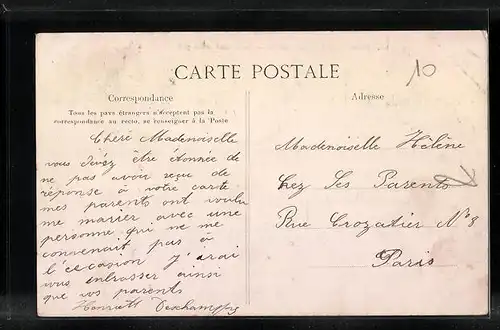 CARTE POSTALE
10
Correspondance
Tous les pays étrangers n'acceptent pas la
correspondance au recto, se renseigner à la Poste
Chère Mademoiselle
vous être étonnée de
ne pas avoir reçu de
réponse à votre carte
mes parents ont voulu
me marier avec une
personne qui ne me
convenait pas à
l'occasion j'irai
vous embrasser ainsi
que vos parents
Henriett Deschamps
Adresse
Mademoiselle Hélène
Chez Ses Parents
Rue Crozatier N° 8
Paris